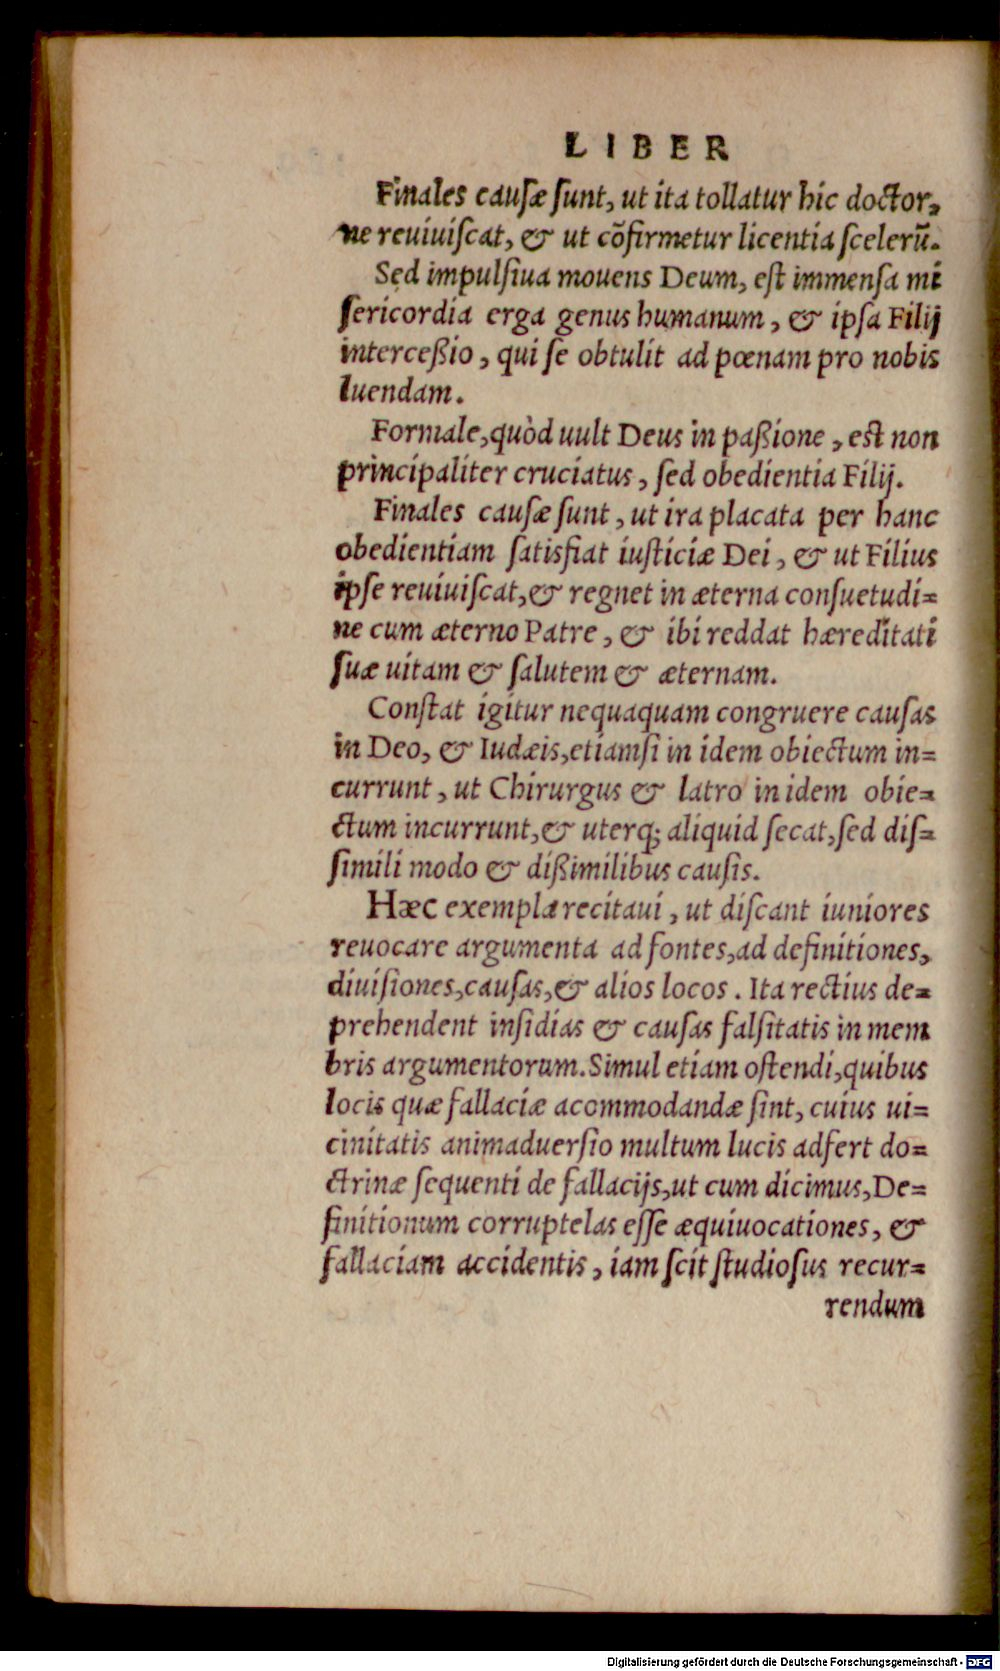 LIBER
Finales cauſæ ſunt, ut ita tollatur hic doctor,
ne reuiuiſcat, & ut cõfirmetur licentia ſcelerũ.
Sed impulſiua mouens Deum, eſt immenſa mi
ſericordia erga genus humanum, & ipſa Filij
interceßio, qui ſe obtulit ad pœnam pro nobis
luendam.
Formale, quòd uult Deus in paßione, est non
principaliter cruciatus, ſed obedientia Filij.
Finales cauſæ ſunt, ut ira placata per hanc
obedientiam ſatisfiat iuſticiæ Dei, & ut Filius
ipſe reuiuiſcat, & regnet in æterna conſuetudi=
ne cum æterno Patre, & ibi reddat hæreditati
ſuæ uitam & ſalutem & æternam.
Conſtat igitur nequaquam congruere cauſas
in Deo, & Iudæis, etiamſi in idem obiectum in=
currunt, ut Chirurgus & latro in idem obie=
ctum incurrunt, & uterq; aliquid ſecat, ſed diſ=
ſimili modo & dißimilibus cauſis.
Hæc exempla recitaui, ut diſcant iuniores
reuocare argumenta ad fontes, ad definitiones,
diuiſiones, cauſas, & alios locos. Ita rectius de=
prehendent inſidias & cauſas falſitatis in mem
bris argumentorum. Simul etiam oſtendi, quibus
locis quæ fallaciæ accommodandæ ſint, cuius ui=
cinitatis animaduerſio multum lucis adfert do=
ctrinæ ſequenti de fallacijs, ut cum dicimus, De=
finitionum corruptelas eſſe æquiuocationes, &
fallaciam accidentis, iam ſcit ſtudioſus recur=
rendum
Digitalisierung gefördert durch die Deutsche Forschungsgemeinschaft - DFG